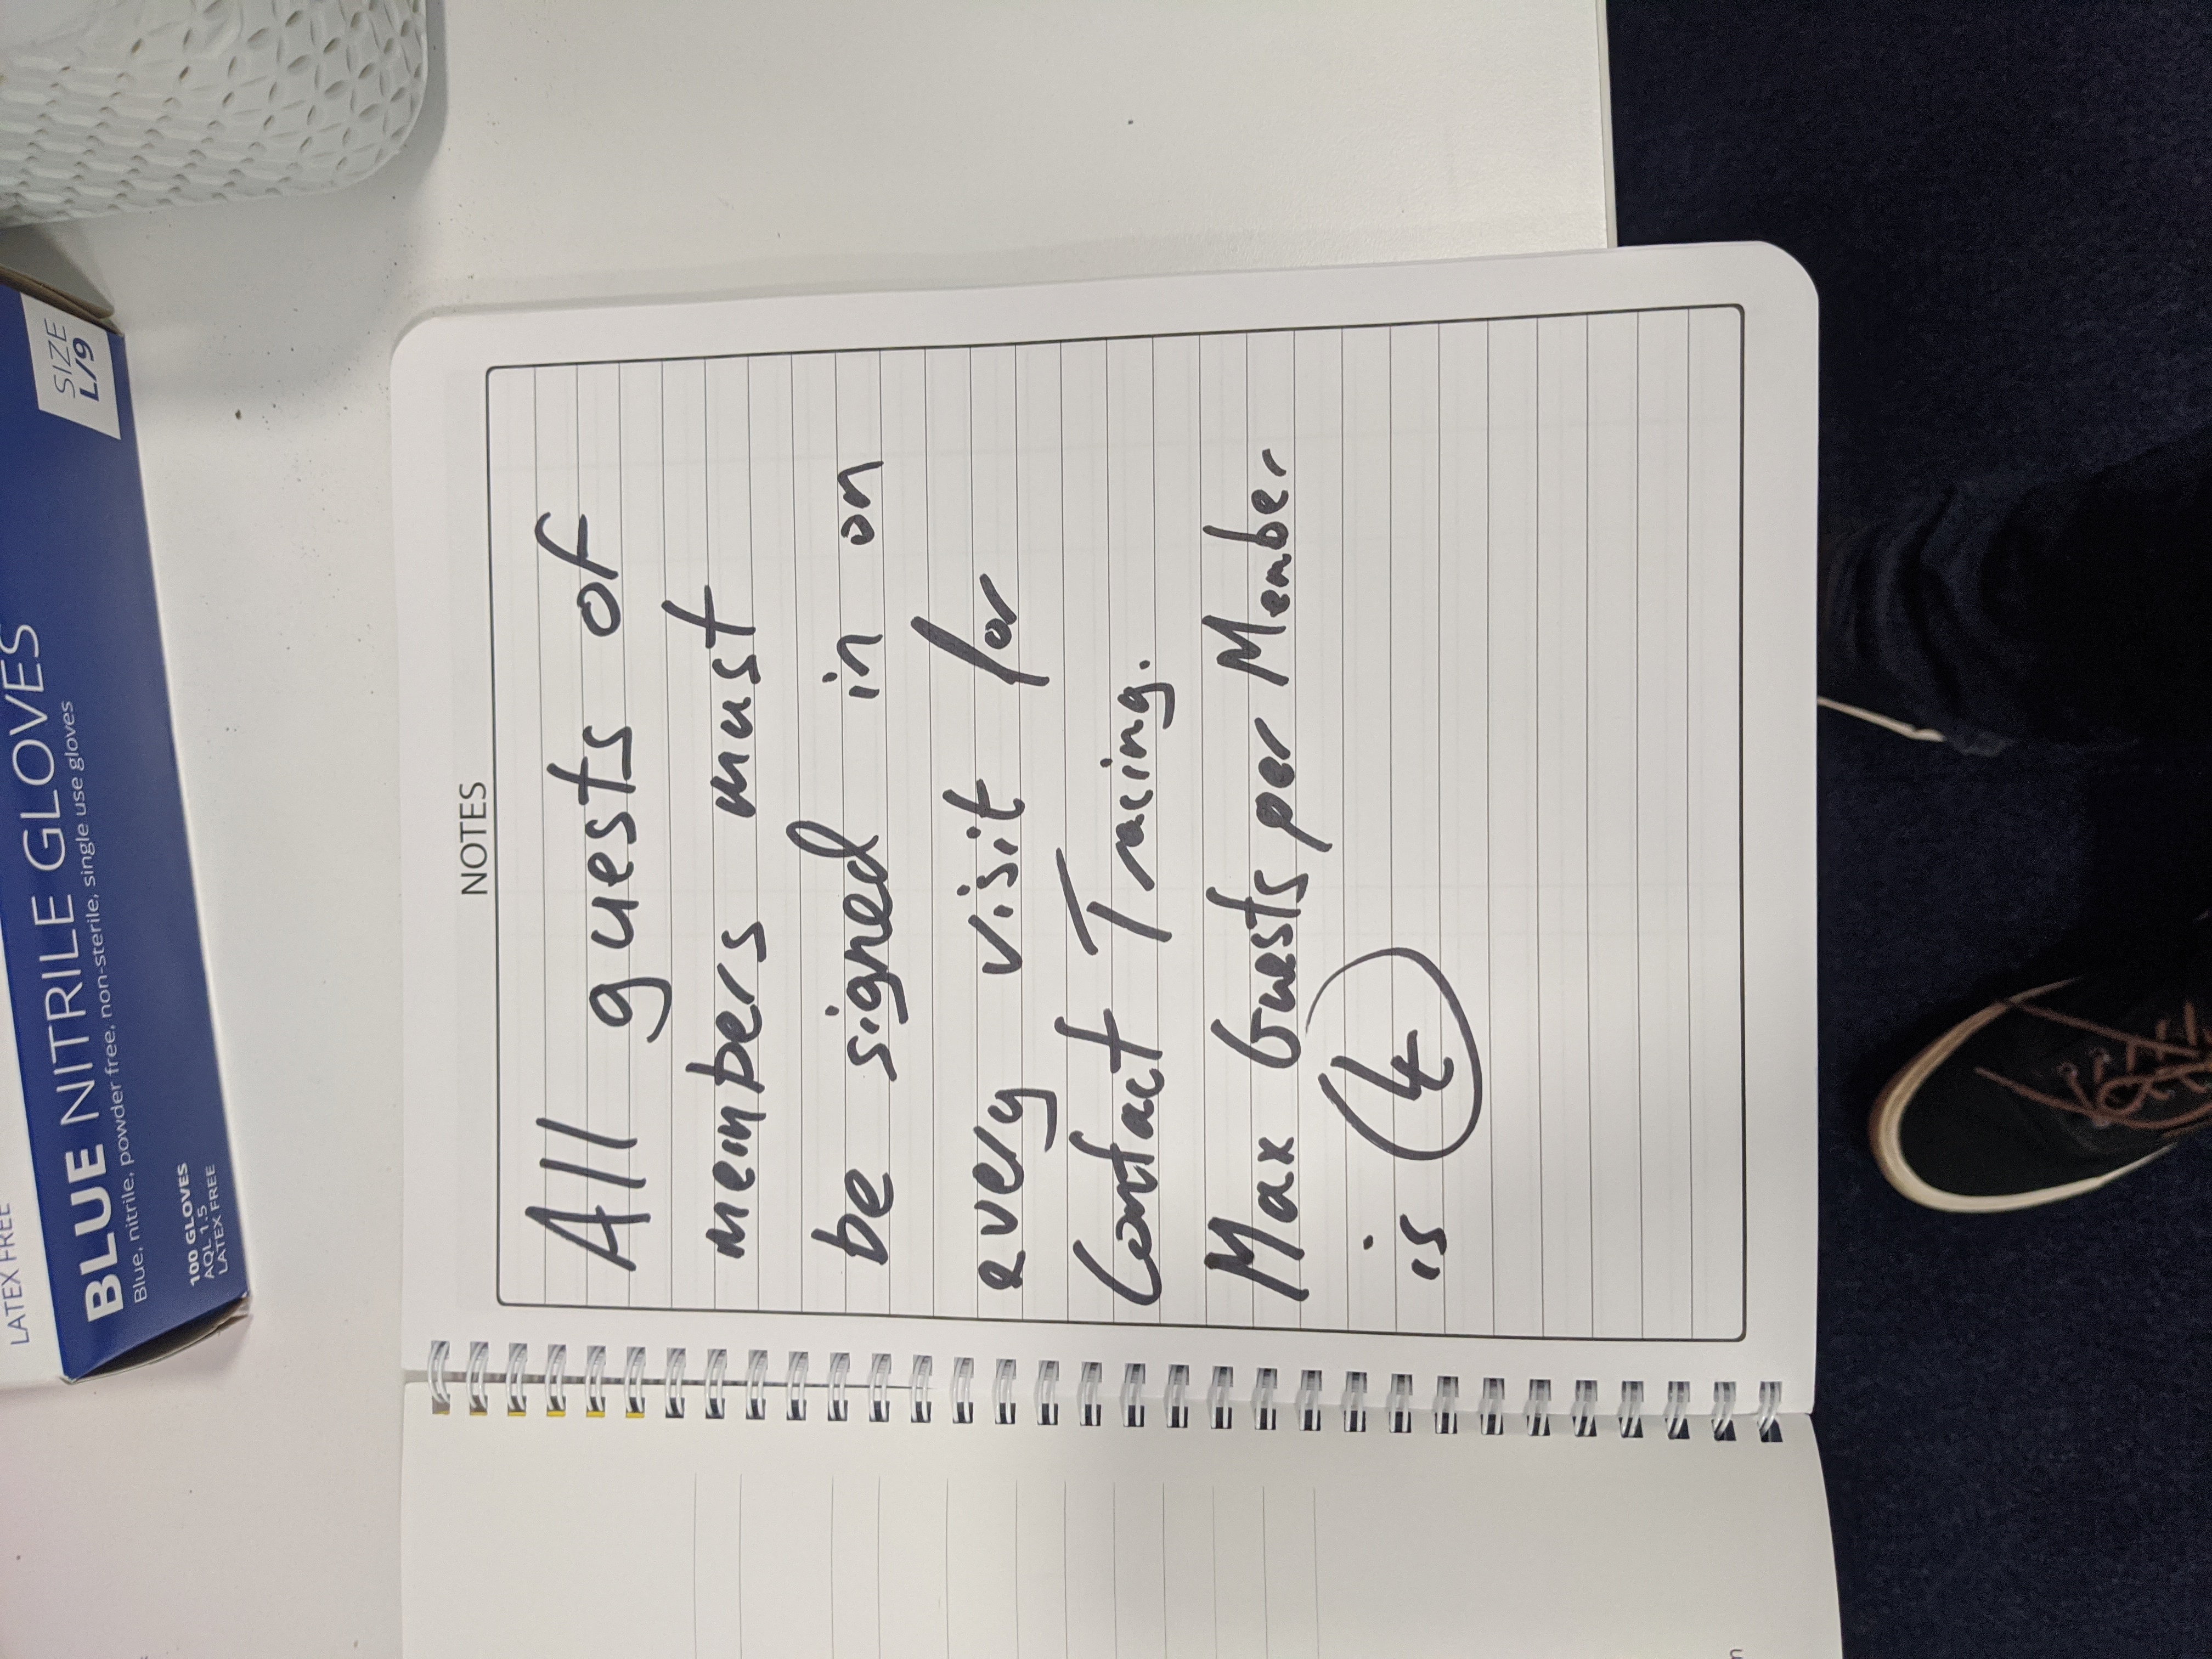 LATEX FREE
BLUE NITRILE GLOVES
Blue, nitrile, powder free, non-sterile, single use gloves
SIZE
L/9
100 GLOVES
AQL 1.5
LATEX FREE
NOTES
All guests of
members must
be signed in on
every visit for
Contact Tracing.
Max Guests per Member
is 4